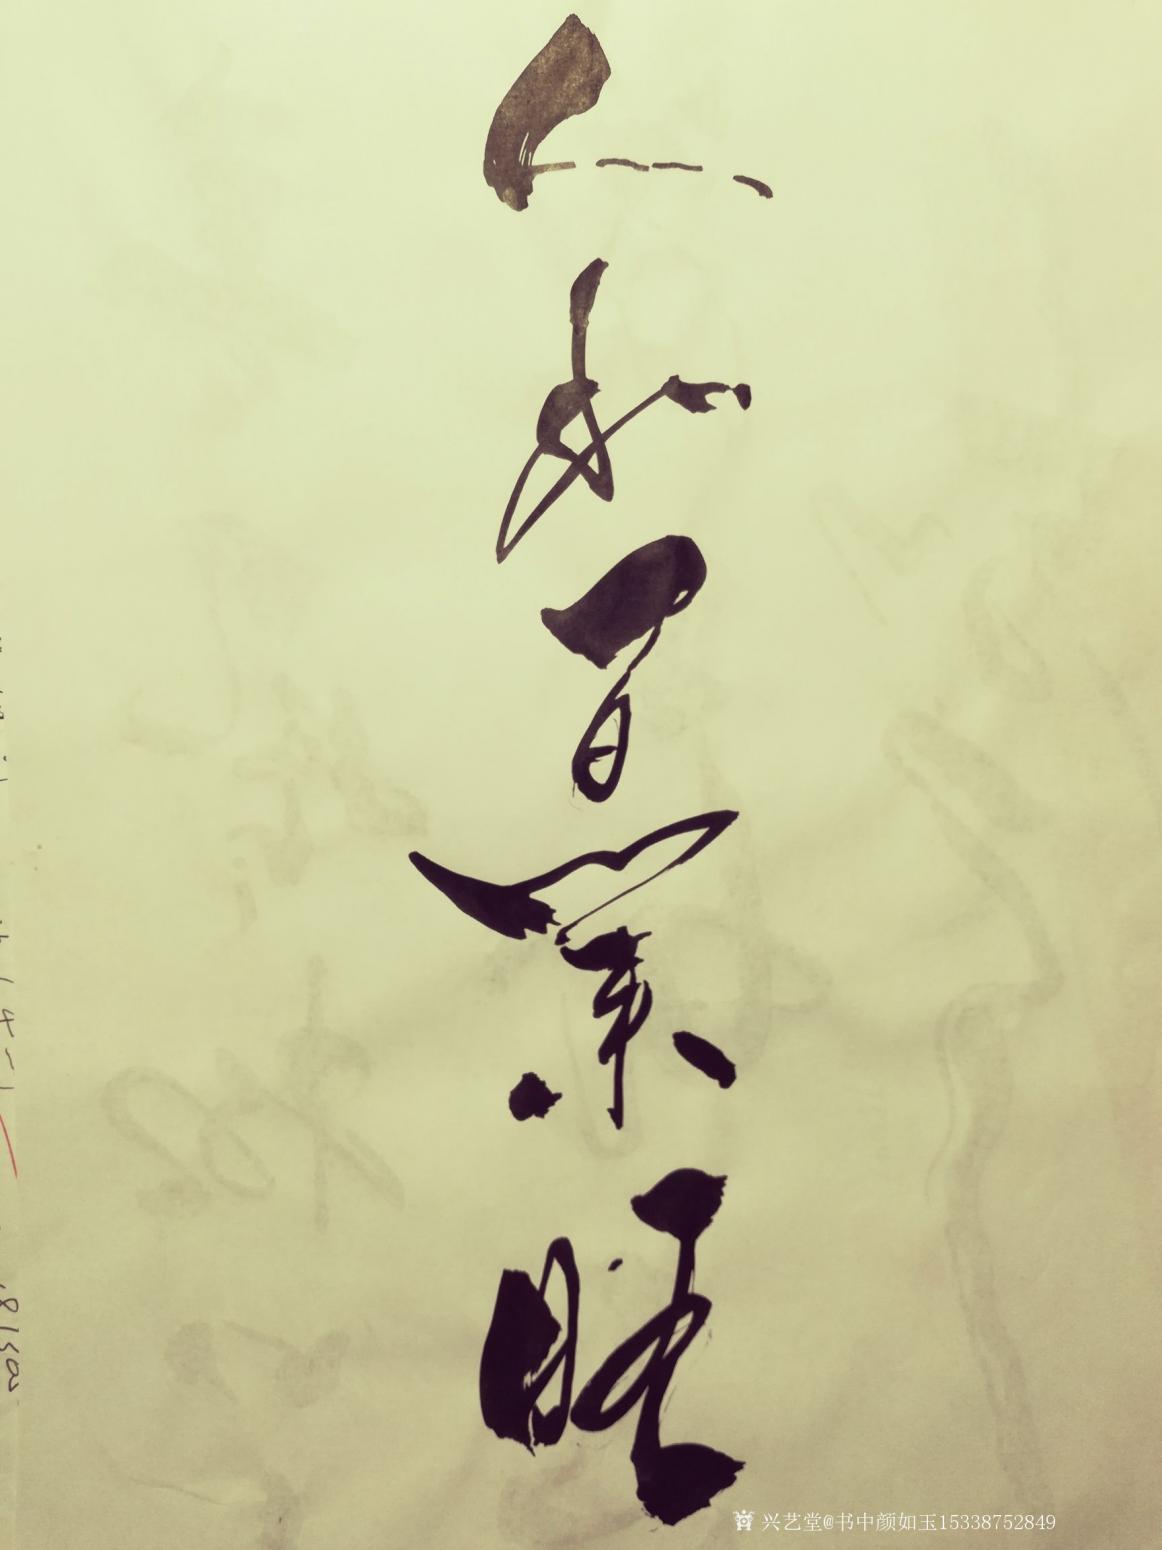 人和百業旺
兴艺堂@书中颜如玉15338752849